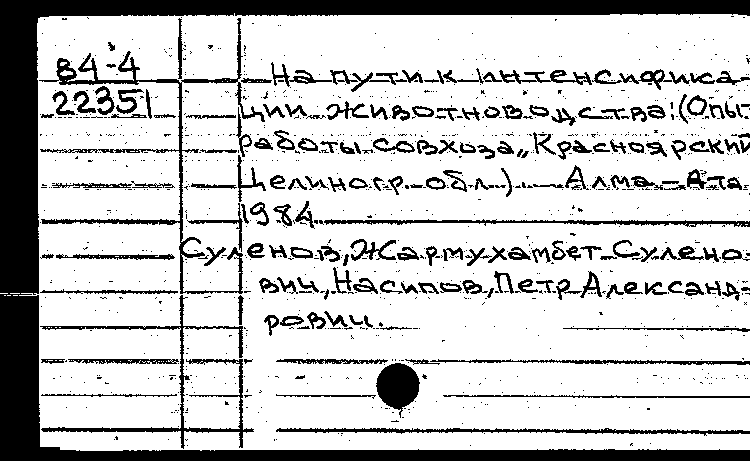 84-4
22351
На пути к интенсифика-
ции животноводства: (Опыт
работы совхоза „Красноярский
Целиногр. обл.). — Алма-Ата
1984
Суленов, Жармухамбет Сулено-
вич, Насипов, Петр Александ-
рович.